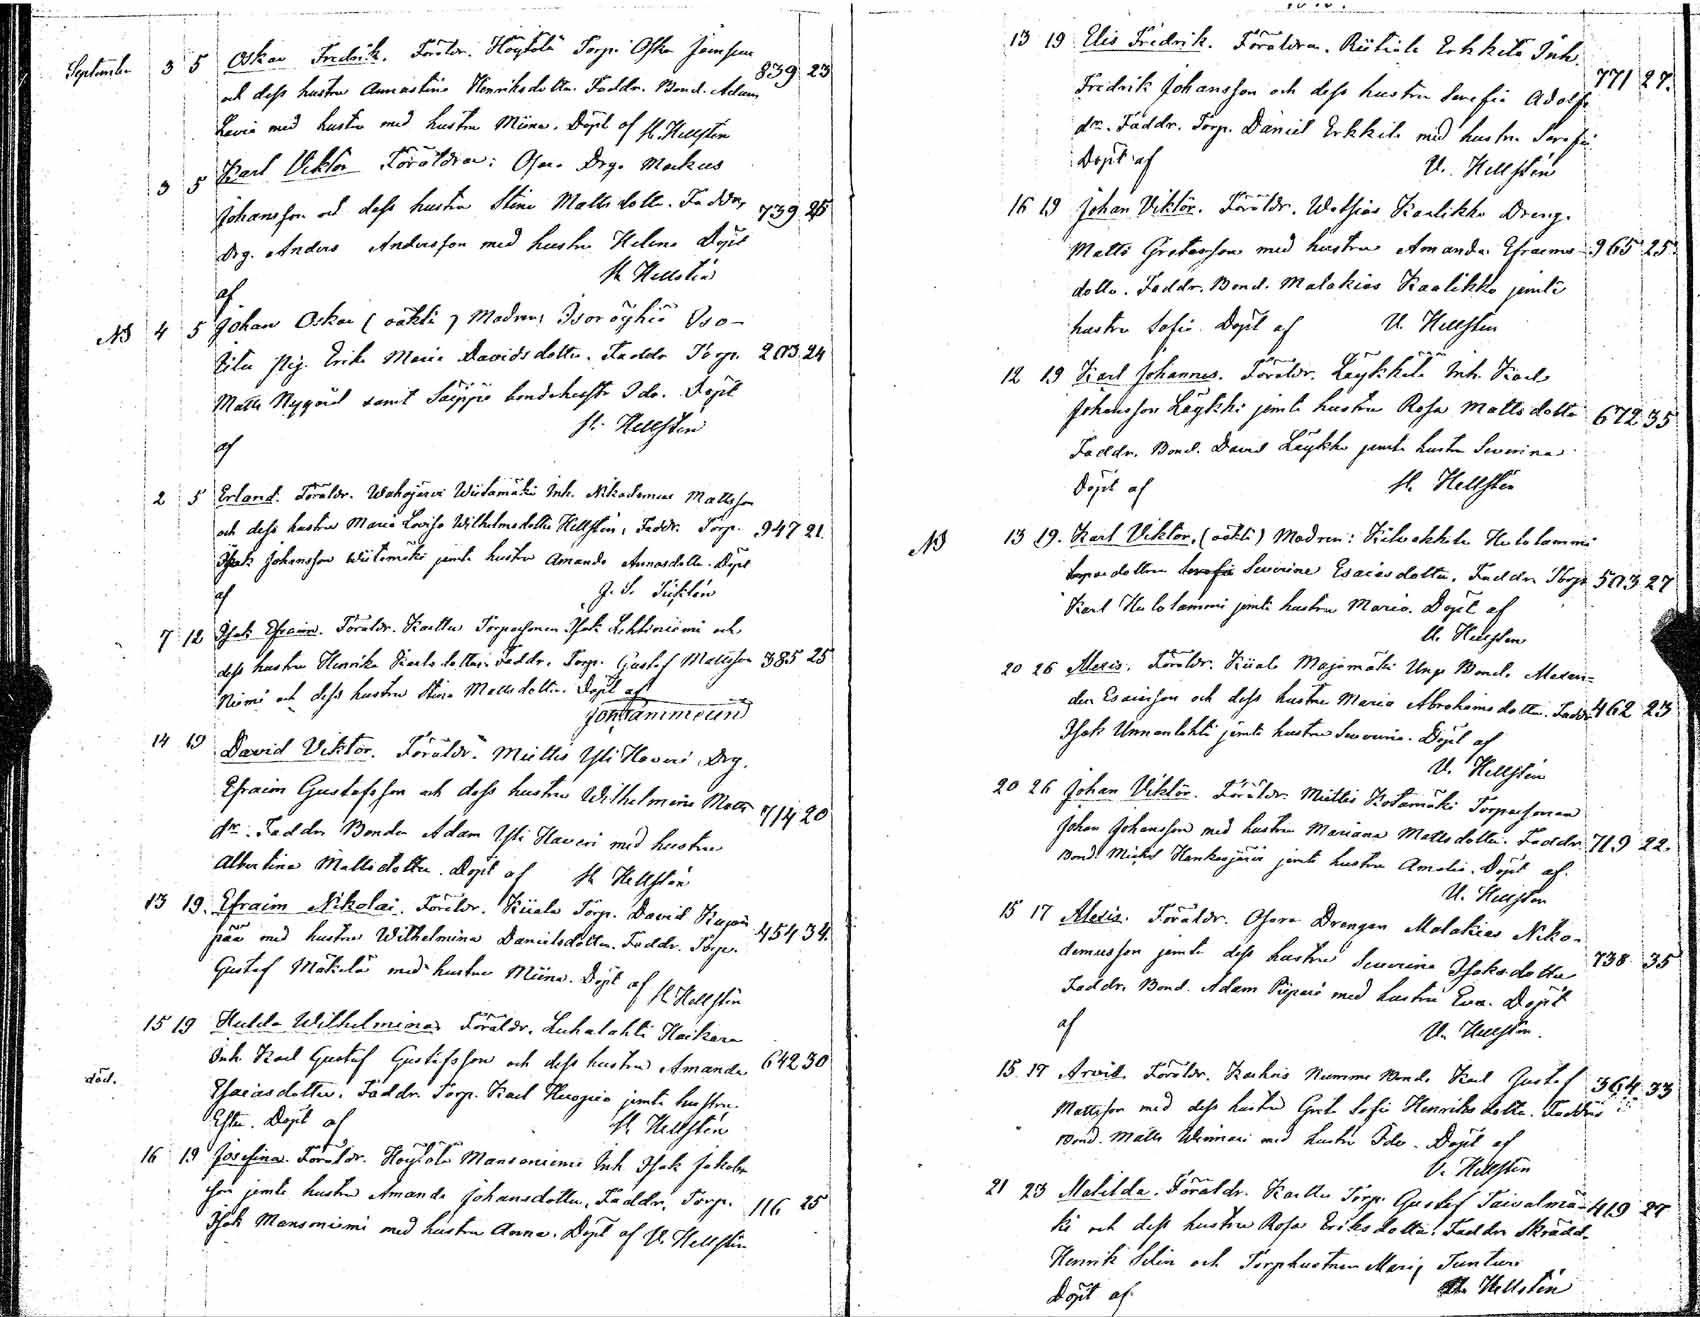 September 3 5 Oskar Fredrik. Föräldr. Höytölä Torp. Oskar Joinsson
och dess hustru Annastina Henriksdotter. Faddr. Bond. Adam 839 23
med hustru med hustru Miina. Döpt af H. Hellstén
3 5 Karl Viktor Föräldrar: Osara Drg. Markus
Johansson och dess hustru Stina Mattsdotter. Faddr. 739 25
Drg. Anders Andersson med hustru Helena Döpt
af H. Hellstén
NB 4 5 Johan Oskar (oäkti) Modren: Isoröyhiö Iso-
Pig. Erika Maria Davidsdotter. Faddr. Torp. 203 24
Matts Nyqvist samt Säippä bondehustr. Ida. Döpt
af H. Hellstén
2 5 Erland. Föräldr. Wahojärvi Wiitamäki Inh. Nikodemus Mattsson
och dess hustru Maria Lovisa Wilhelmsdotter Hellstén, Faddr. Torp. 947 21.
Isak Johansson Wiitamäki jemte hustru Amanda Annasdotter. Döpt
af
7 12 Isak Efraim. Föräldr. Karttu Torparsonen Isak Lehtiniemi och
dess hustru Henrika Karlsdotter. Faddr. Torp. Gustaf Mattsson 385 25
Niemi och dess hustru Stina Mattsdotter. Döpt af
Joh Tammelin
14 19 David Viktor. Föräldr. Miettis Yli Haveri, Drg.
Efraim Gustafsson och dess hustru Wilhelmina Matts 714 20
dr. Faddr. Bonden Adam Yli Haveri med hustru
Albertina Mattsdotter. Döpt af H. Hellstén
13 19. Efraim Nikolai. Föräldr. Kiiala Torp. David Kujan
pää med hustru Wilhelmina Danielsdotter. Faddr. Torp. 454 34.
Gustaf Mäkelä med hustru Miina. Döpt af H. Hellstén
15 19 Hulda Wilhelmina Föräldr. Luhalahti Haikara
död. Inh. Karl Gustaf Gustafsson och dess hustru Amanda 642 30
Esaiasdotter. Faddr. Torp. Karl jemte hustru
Ester. Döpt af H. Hellstén
16 19 Josefina. Föräldr. Höytölä Mansoniemi Inh. Isak Jakobs
son jemte hustru Amanda Johansdotter, Faddr. Torp. 116 25
Isak Mansoniemi med hustru Anna. Döpt af V. Hellstén
13 19 Elis Fredrik. Föräldrar. Riitiala Erkkilä Inh.
Fredrik Johansson och dess hustru Serafia Adolfs 771 27.
dr. Faddr. Torp. Daniel Erkkilä med hustru Serafia
Döpt af V. Hellstén
16 19 Johan Viktor. Föräldr. Watsias Kaalikko Dreng.
Matts Gustafsson med hustru Amanda Efraims- 965 25.
dotter. Faddr. Bond. Malakias Kaalikko jemte
hustru Sofia. Döpt af V. Hellstén
12 19 Karl Johannes. Föräldr. Läykkälä Inh. Karl
Johansson Läykki jemte hustru Rosa Mattsdotter 672 35
Faddr. Bond. David Läykki jemte hustru Severina
Döpt af H. Hellstén
NB 13 19. Karl Viktor, (oäkti) Modren: Kilvakkala Hulolammi
torparedottren Severina Esaiasdotter. Faddr. Torp. 503 27
Karl Hulolammi jemte hustru Maria. Döpt af
V. Hellstén
20 26 Alexis. Föräldr. Kiiala Majamäki Unge Bond. Alexan-
der Esaiasson och dess hustru Maria Abrahamsdotter. Faddr. 462 23
Isak Unnanlahti jemte hustru Severina. Döpt af
V. Hellstén
20 26 Johan Viktor. Föräldr. Miettis Kotamäki Torparsonen
Johan Johansson med hustru Mariana Mattsdotter. Faddr. 719 22.
Bond. Mickel Hankasjärvi jemte hustru Amalia. Döpt af.
V. Hellstén
15 17 Alexis. Föräldr. Osara Drengen Malakias Niko-
demusson jemte dess hustru Severina Isaksdotter 738 35
Faddr. Bond. Adam Piipari med hustru Eva. Döpt
af V. Hellstén.
15 17 Arvid. Föräldr. Karhois Rumma Bond. Karl Gustaf 364 33
Mattsson med dess hustru Greta Sofia Henriksdotter. Faddrar
Bond. Matts Winnari med hustru Ida. Döpt af
V. Hellstén
21 23 Matilda. Föräldr. Karttu Torp. Gustaf Taivalmä- 419 27
ki och dess hustru Rosa Eriksdotter. Faddr. Skrädd.
Henrik Selin och Torphustrun Maria Tunturi
Döpt af. Hellstén